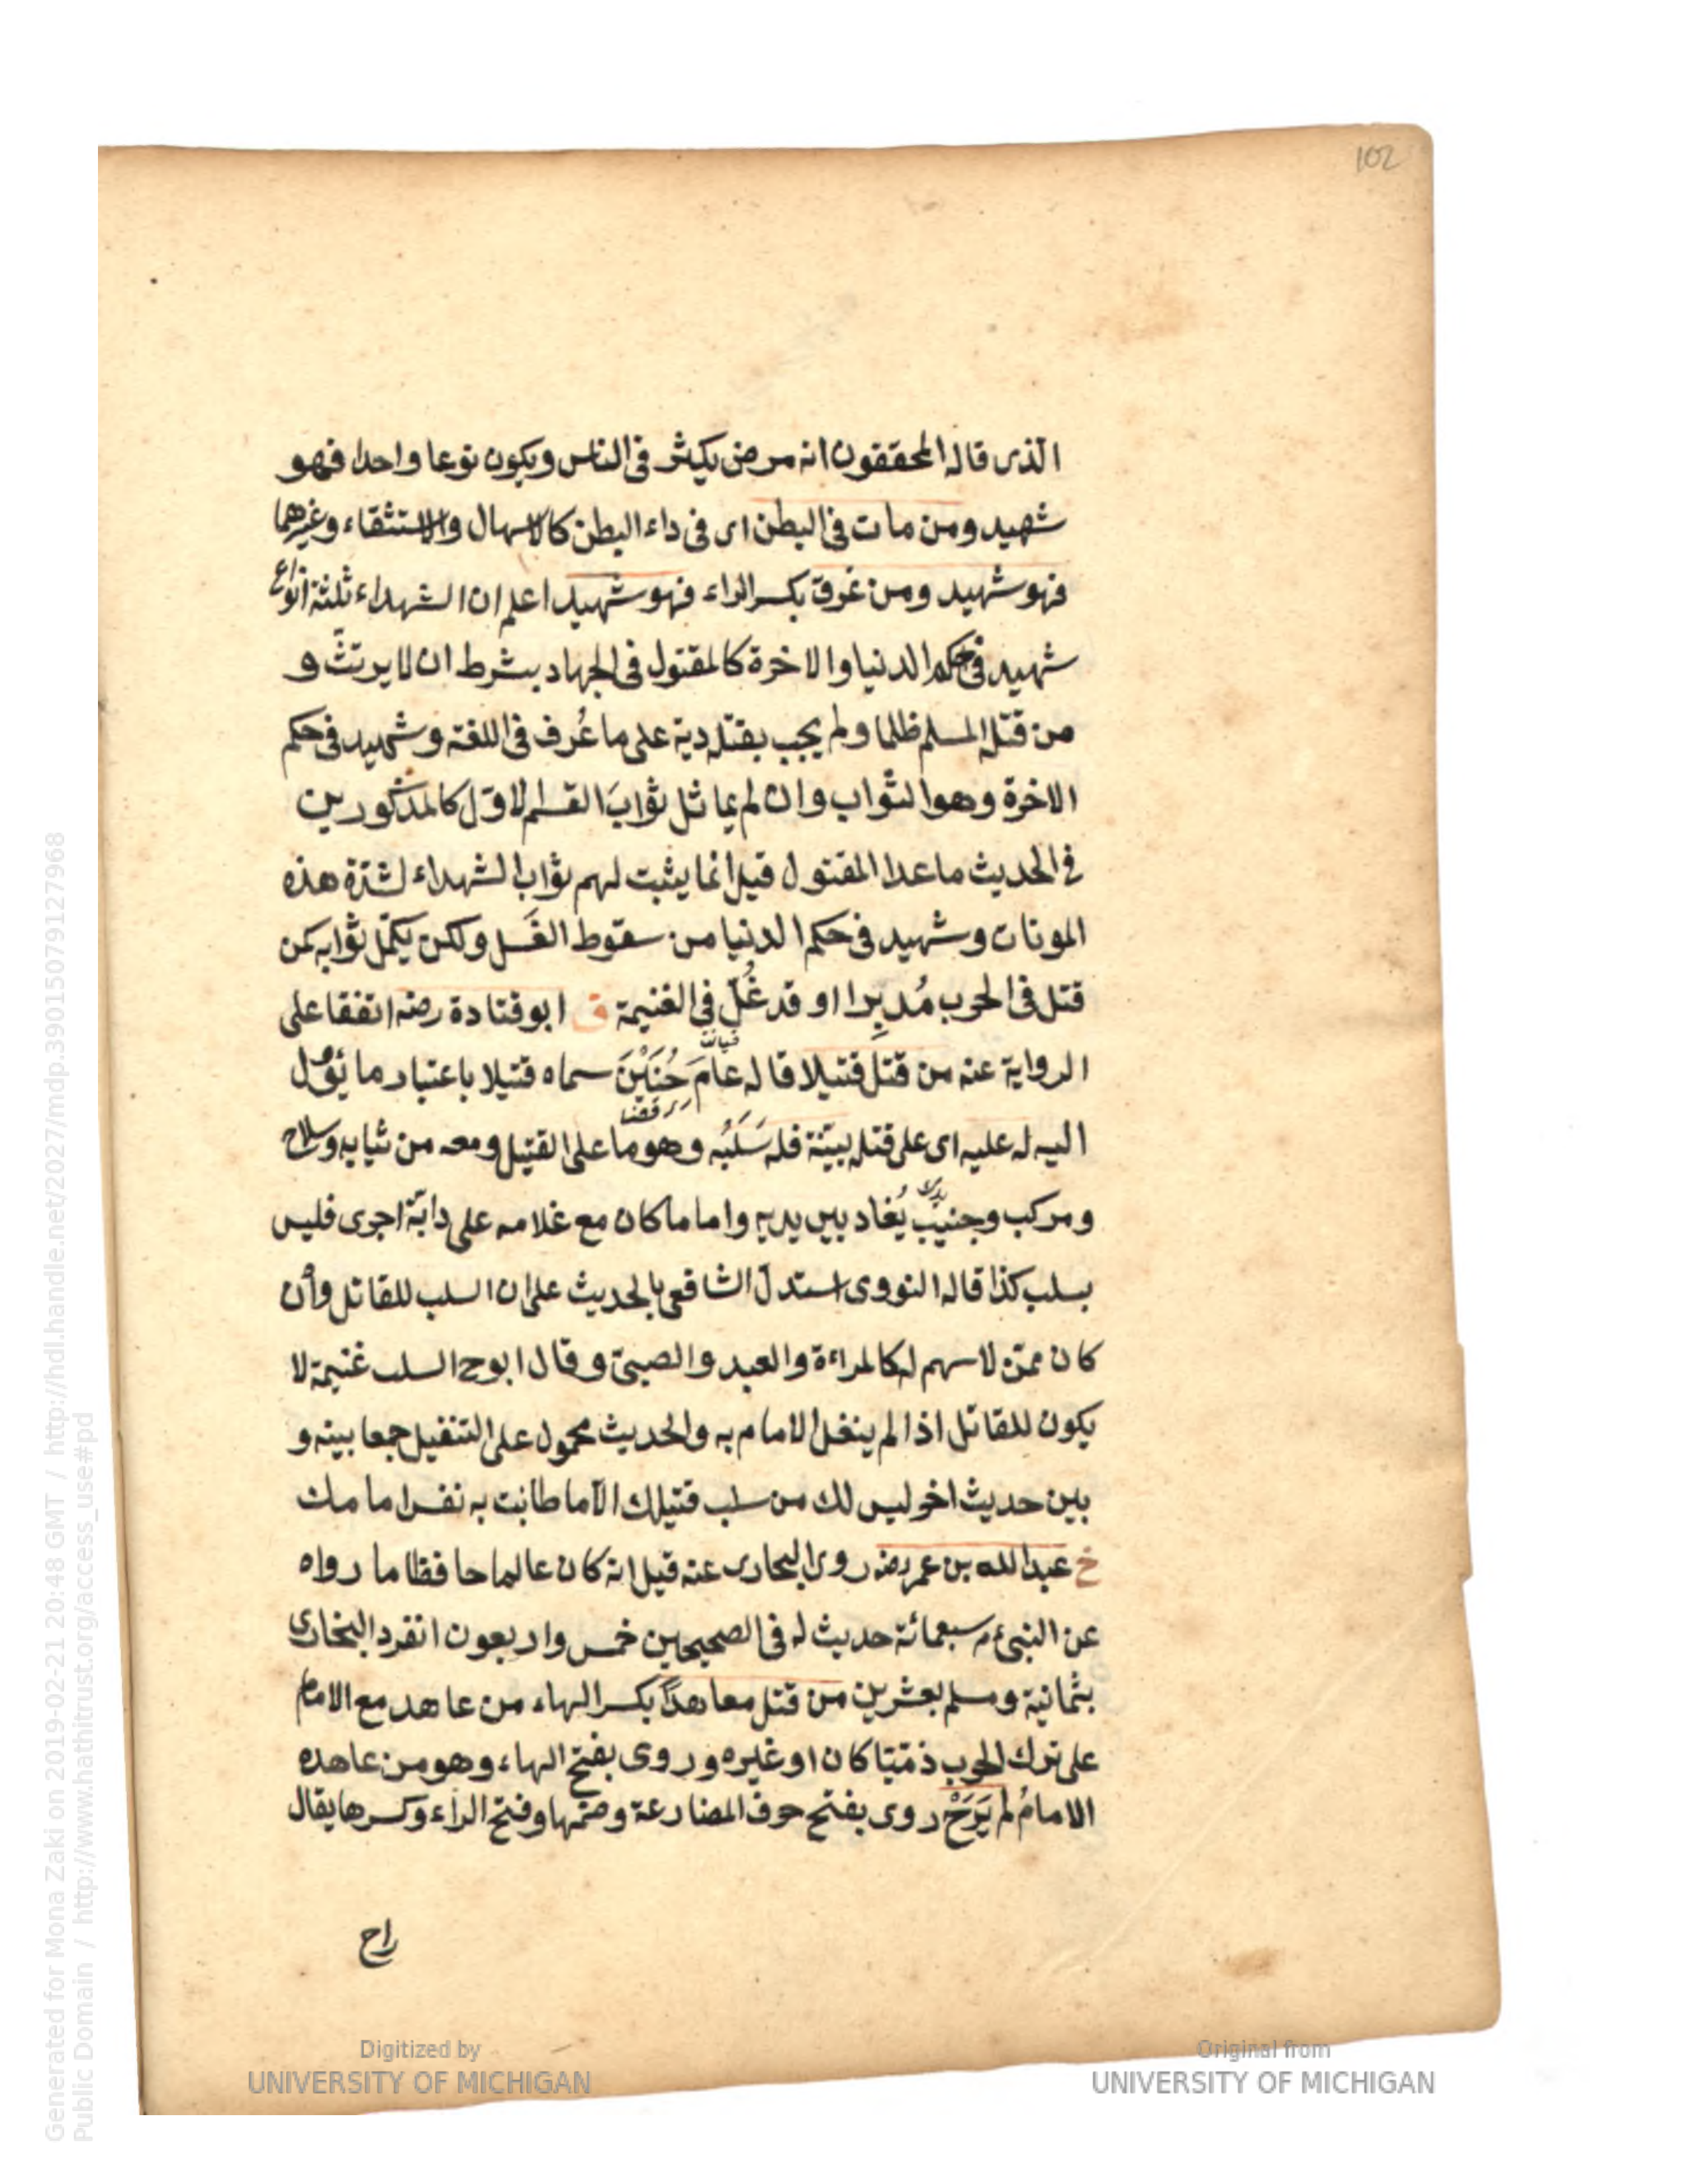 102
الذى قاله المحققون انه مرض يكثر فى الناس ويكون نوعا واحدا فهو
شهيد ومن مات فى البطن اى فى داء البطن كالاسهال والاستثقاء وغيرهما
فهو شهيد ومن غرق بكسر الراء فهو شهيد اعلم ان الشهداء ثلثة انواع
شهيد فى حكم الدنيا والاخرة كالمقتول فى الجهاد بشرط ان لا يرتثّ و
من قتله المسلم ظلما ولم يجب بقتله دية على ما عُرف فى اللغة وشهيد فى حكم
الاخرة وهو الثواب وان لم يماثل ثوابَ القسم الاوّل كالمذكورين
فى الحديث ماعدا المقتول قيل انما يثبت لهم ثواب الشهداء لشدّة هذه
الموتات وشهيد فى حكم الدنيا من سقوط الغَسل ولكن يكمّل ثوابه كمن
قتل فى الحرب مُدبِرا او قد غُلّ فى الغنيمة ق ابو قتادة رضه اتفقا على
الرواية عنه من قتل قتيلا قاله عامَ حُنَيْنَ سماه قتيلا باعتبار ما يَؤُل
اليه له عليه اى على قتله بيّنة فله سَلَبُه وهو ما على القتيل ومعه من ثيابه وسلاح
ومركب وجنيبٌ يُغاد بين يديه واما ما كان مع غلامه على دابّة اجرى فليس
بسلب كذا قاله النووى استدلّ الشافعى بالحديث على ان السلب للقاتل وأن
كان ممّن لا سهم له كالمراءة والعبد والصبىّ وقال ابوح السلب غنيمة لا
يكون للقاتل اذا لم ينفل الامام به والحديث محمول على التنفيل جمعا بينه و
بين حديث اخر ليس لك من سلب قتيلك الّا ما طابت به نفس امامك
خ عبد الله بن عمر رضه روى البخارى عنه قيل انه كان عالما حافظا ما رواه
عن النبى عم سبعمائة حديث له فى الصحيحين خمس واربعون انفرد البخارى
بثمانية ومسلم بعشرين من قتل معاهدًا بكسر الهاء من عاهد مع الامام
على ترك الحرب ذمّيّا كان او غيره وروى بفتح الهاء وهو من عاهده
الامامُ لم يَرَحْ روى بفتح حرف المضارعة وضمّها وفتح الراء وكسرها يقال
راح
Digitized by
UNIVERSITY OF MICHIGAN
Original from
UNIVERSITY OF MICHIGAN
Generated for Mona Zaki on 2019-02-21 20:48 GMT / http://hdl.handle.net/2027/mdp.39015079127968
Public Domain / http://www.hathitrust.org/access_use#pd